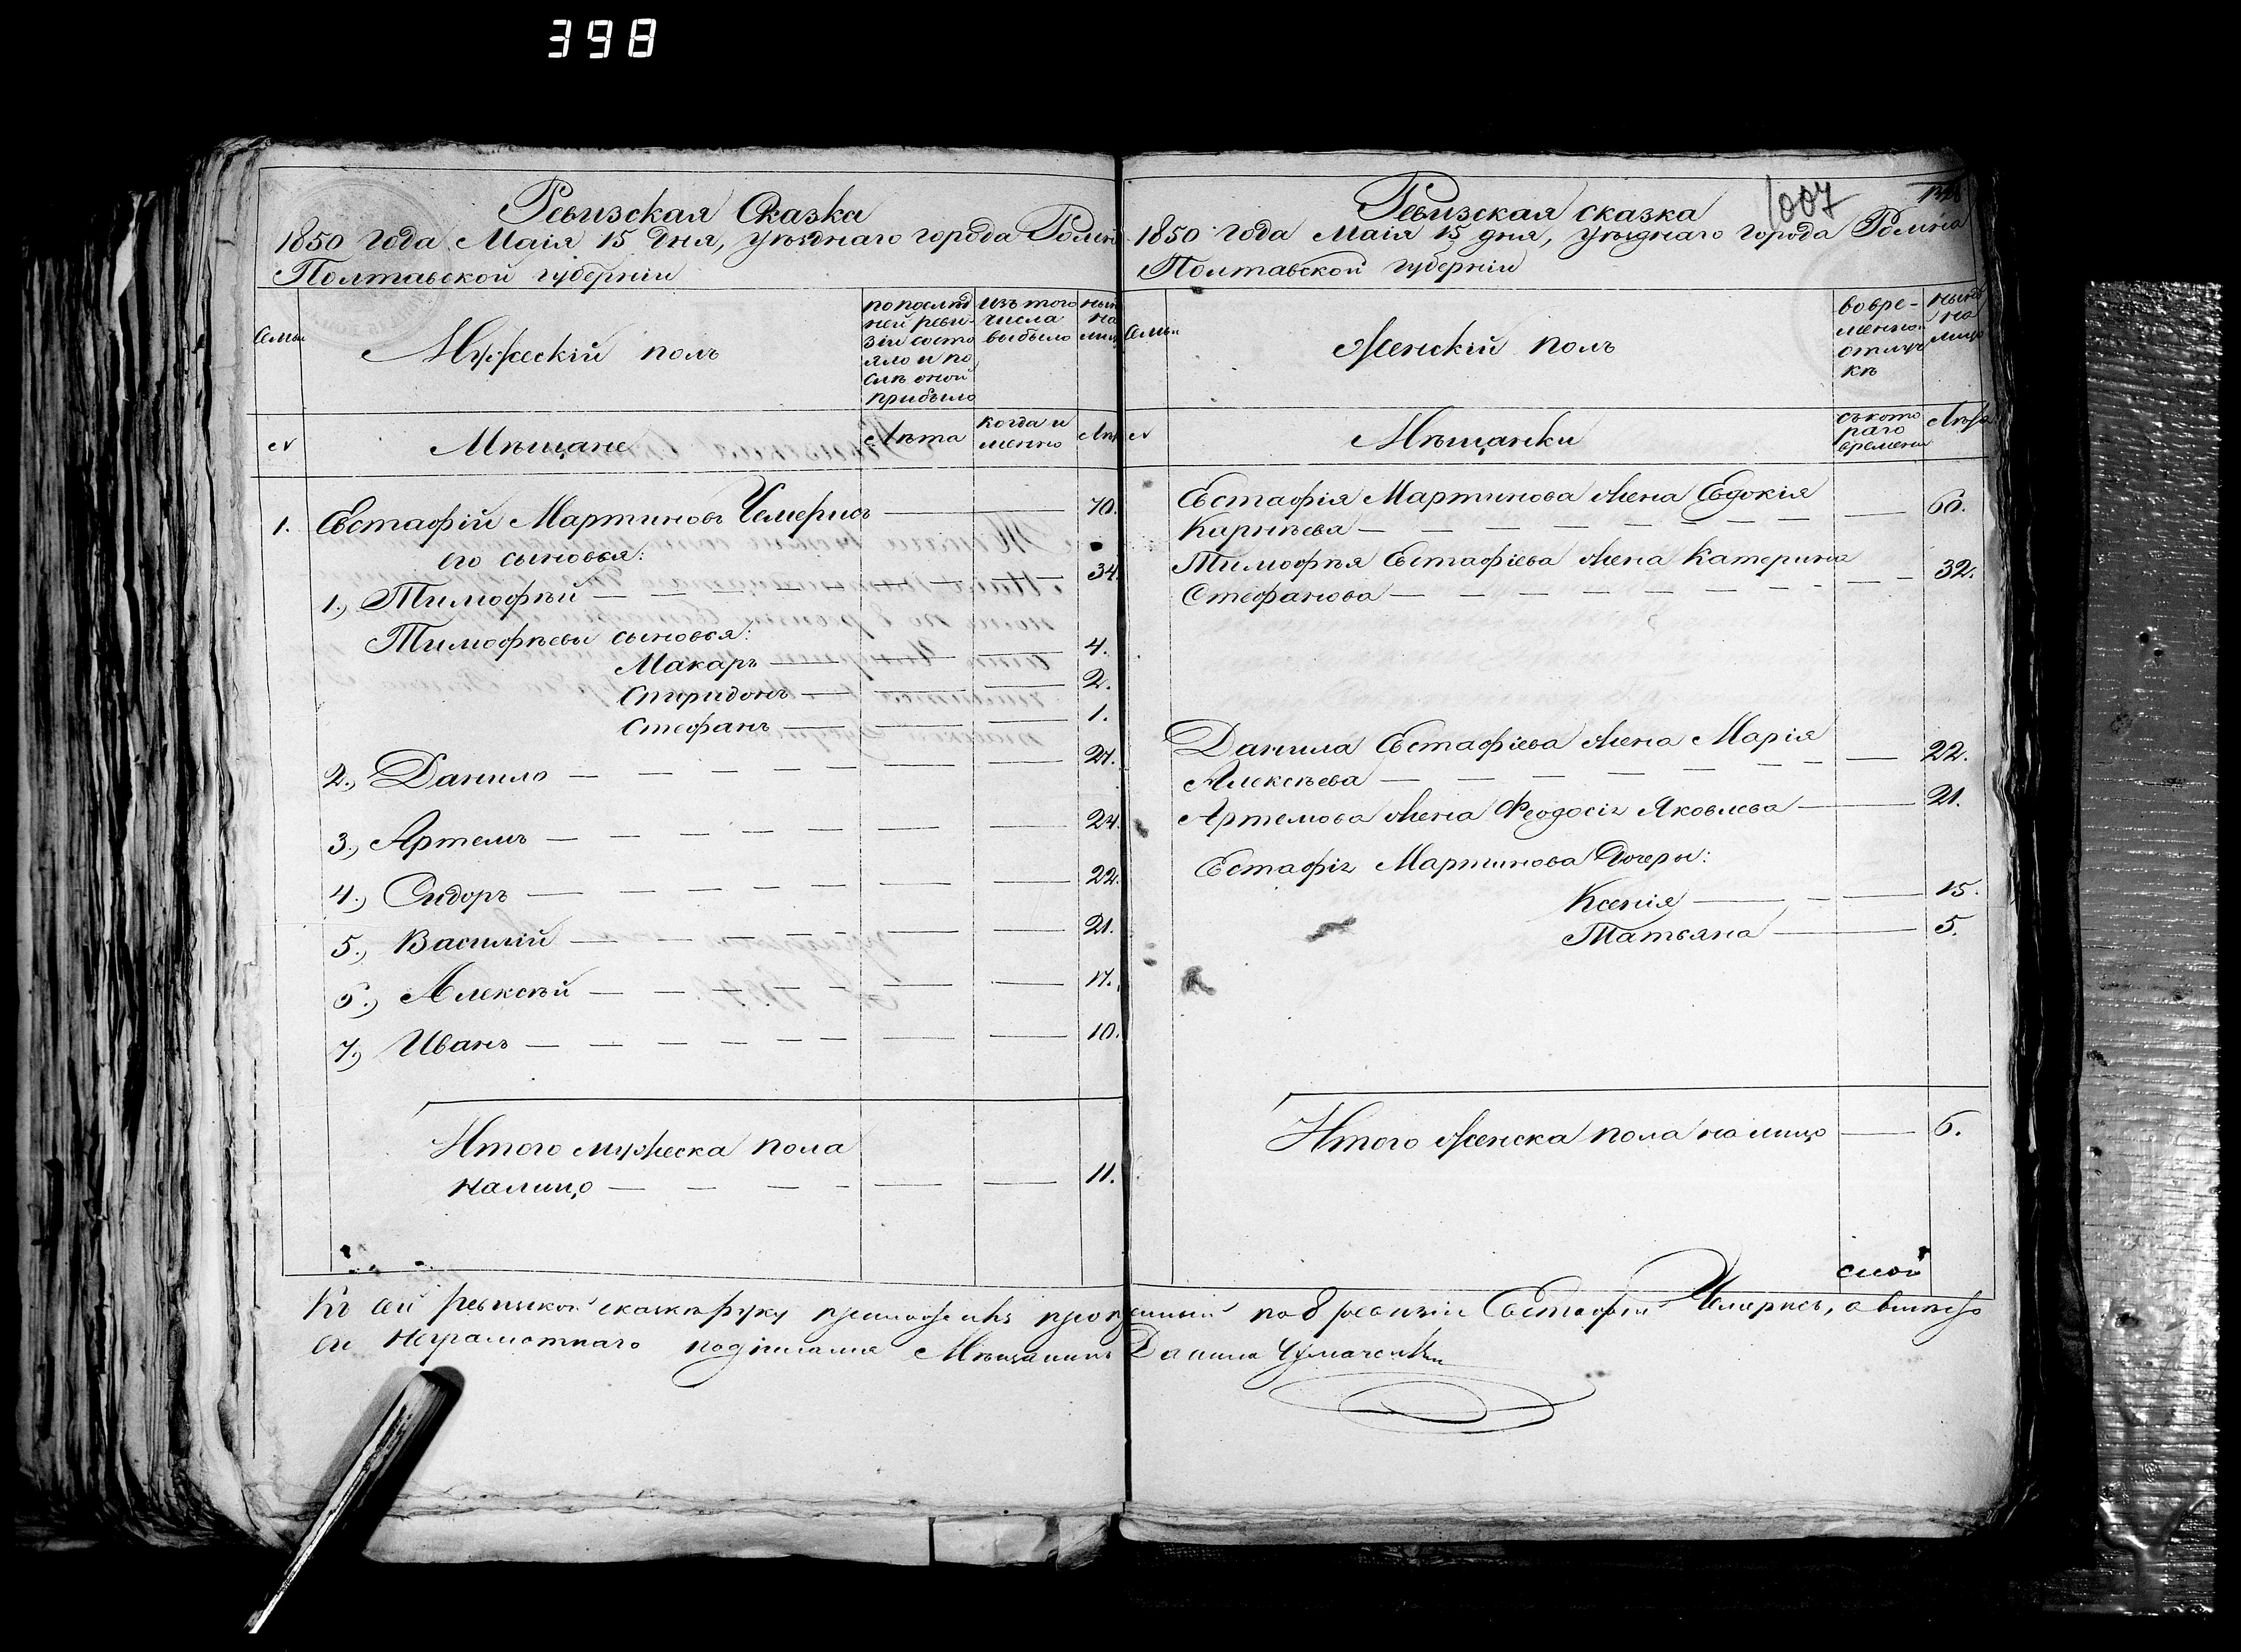 398
Ревизская Сказка
1850 года Маія 15 дня, уѣзднаго города Ромн
Полтавской губерніи
Семьи
Мужескій полъ
по послѣд
ней реви-
зіи состо
яло и по
слѣ оной
прибыло
изъ того
числа
выбыло
ны
на
ли
№
Мѣщане
Лѣта
когда и
менно
Лѣ
1. Евстафій Мартиновъ Чемерисъ — 70.
его сыновья:
1., Тимофѣй — 34.
Тимофѣевы сыновья:
Макаръ — 4.
Спиридонъ — 2.
Стефанъ — 1.
2., Данило — 27.
3., Артемъ — 24.
4., Сидоръ — 22.
5., Василій — 21.
6., Алексѣй — 17.
7., Иванъ — 10.
Итого мужеска пола
налицо — 11.
Ревизская сказка
1007
1850 года Маія 15 дня, уѣзднаго города Ромна
Полтавской губерніи
Семьи
Женскій полъ
во вре-
менной
отлуч
кѣ
нынѣ
на
лицо
№
Мѣщанки
съ кото
раго
времени
Лѣта
Евстафія Мартинова жена Евдокія
Карнѣева — 60.
Тимофѣя Евстафіева жена Катерина
Стефанова — 32.
Данила Евстафіева жена Марія
Алексѣева — 22.
Артемова жена Феодосія Яковлева — 21.
Евстафія Мартинова дочеры:
Ксенія — 15.
Татьяна — 5.
Итого женска пола налицо — 6.
Къ сей ревизкой сказкѣ руку приложилъ по 8 ревизіи Евстафій Чемерисъ, а вмѣсто
его неграмотнаго подписался Мѣщанинъ Данила Чумаченко